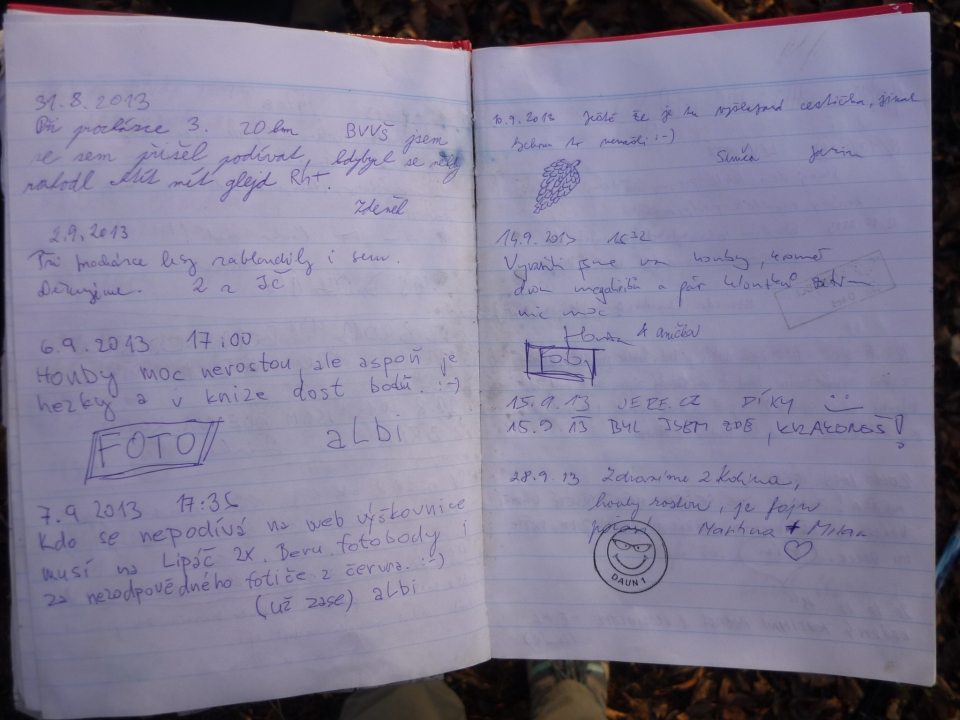 31.8.2013
Při procházce 3. 20 km BVVŠ jsem
se sem přišel podívat, kdybych se
mít glejd
Zdeněk
2.9.2013
Při procházce lesy zabloudily i sem.
Děkujeme. 2 z JČ
6.9.2013 17:00
Houby moc nerostou, ale aspoň je
hezky a v knize dost bodů. :-)
FOTO albi
7.9 2013 17:35
Kdo se nepodívá na web výškovnice
musí na Lipáč 2x. Beru fotobody i
za nezodpovědného fotiče z června. :-)
(už zase) albi
10.9.2013 Ještě že je tu cestička, jinak
bychom to nenašli :-)
14.9.2013 1632
Vyrazili jsme na houby, kromě
dvou megahřibů a pár klouzků zatím
nic moc
Honza A anička
Foto
15.9.13 JERE.CZ DÍKY
15.9 13 BYL JSEM ZDE, KRAKONOŠ!
28.9.13 Zdravíme z Kolína,
houby rostou, je fajn
počasí Martina + Milan
DAUN 1